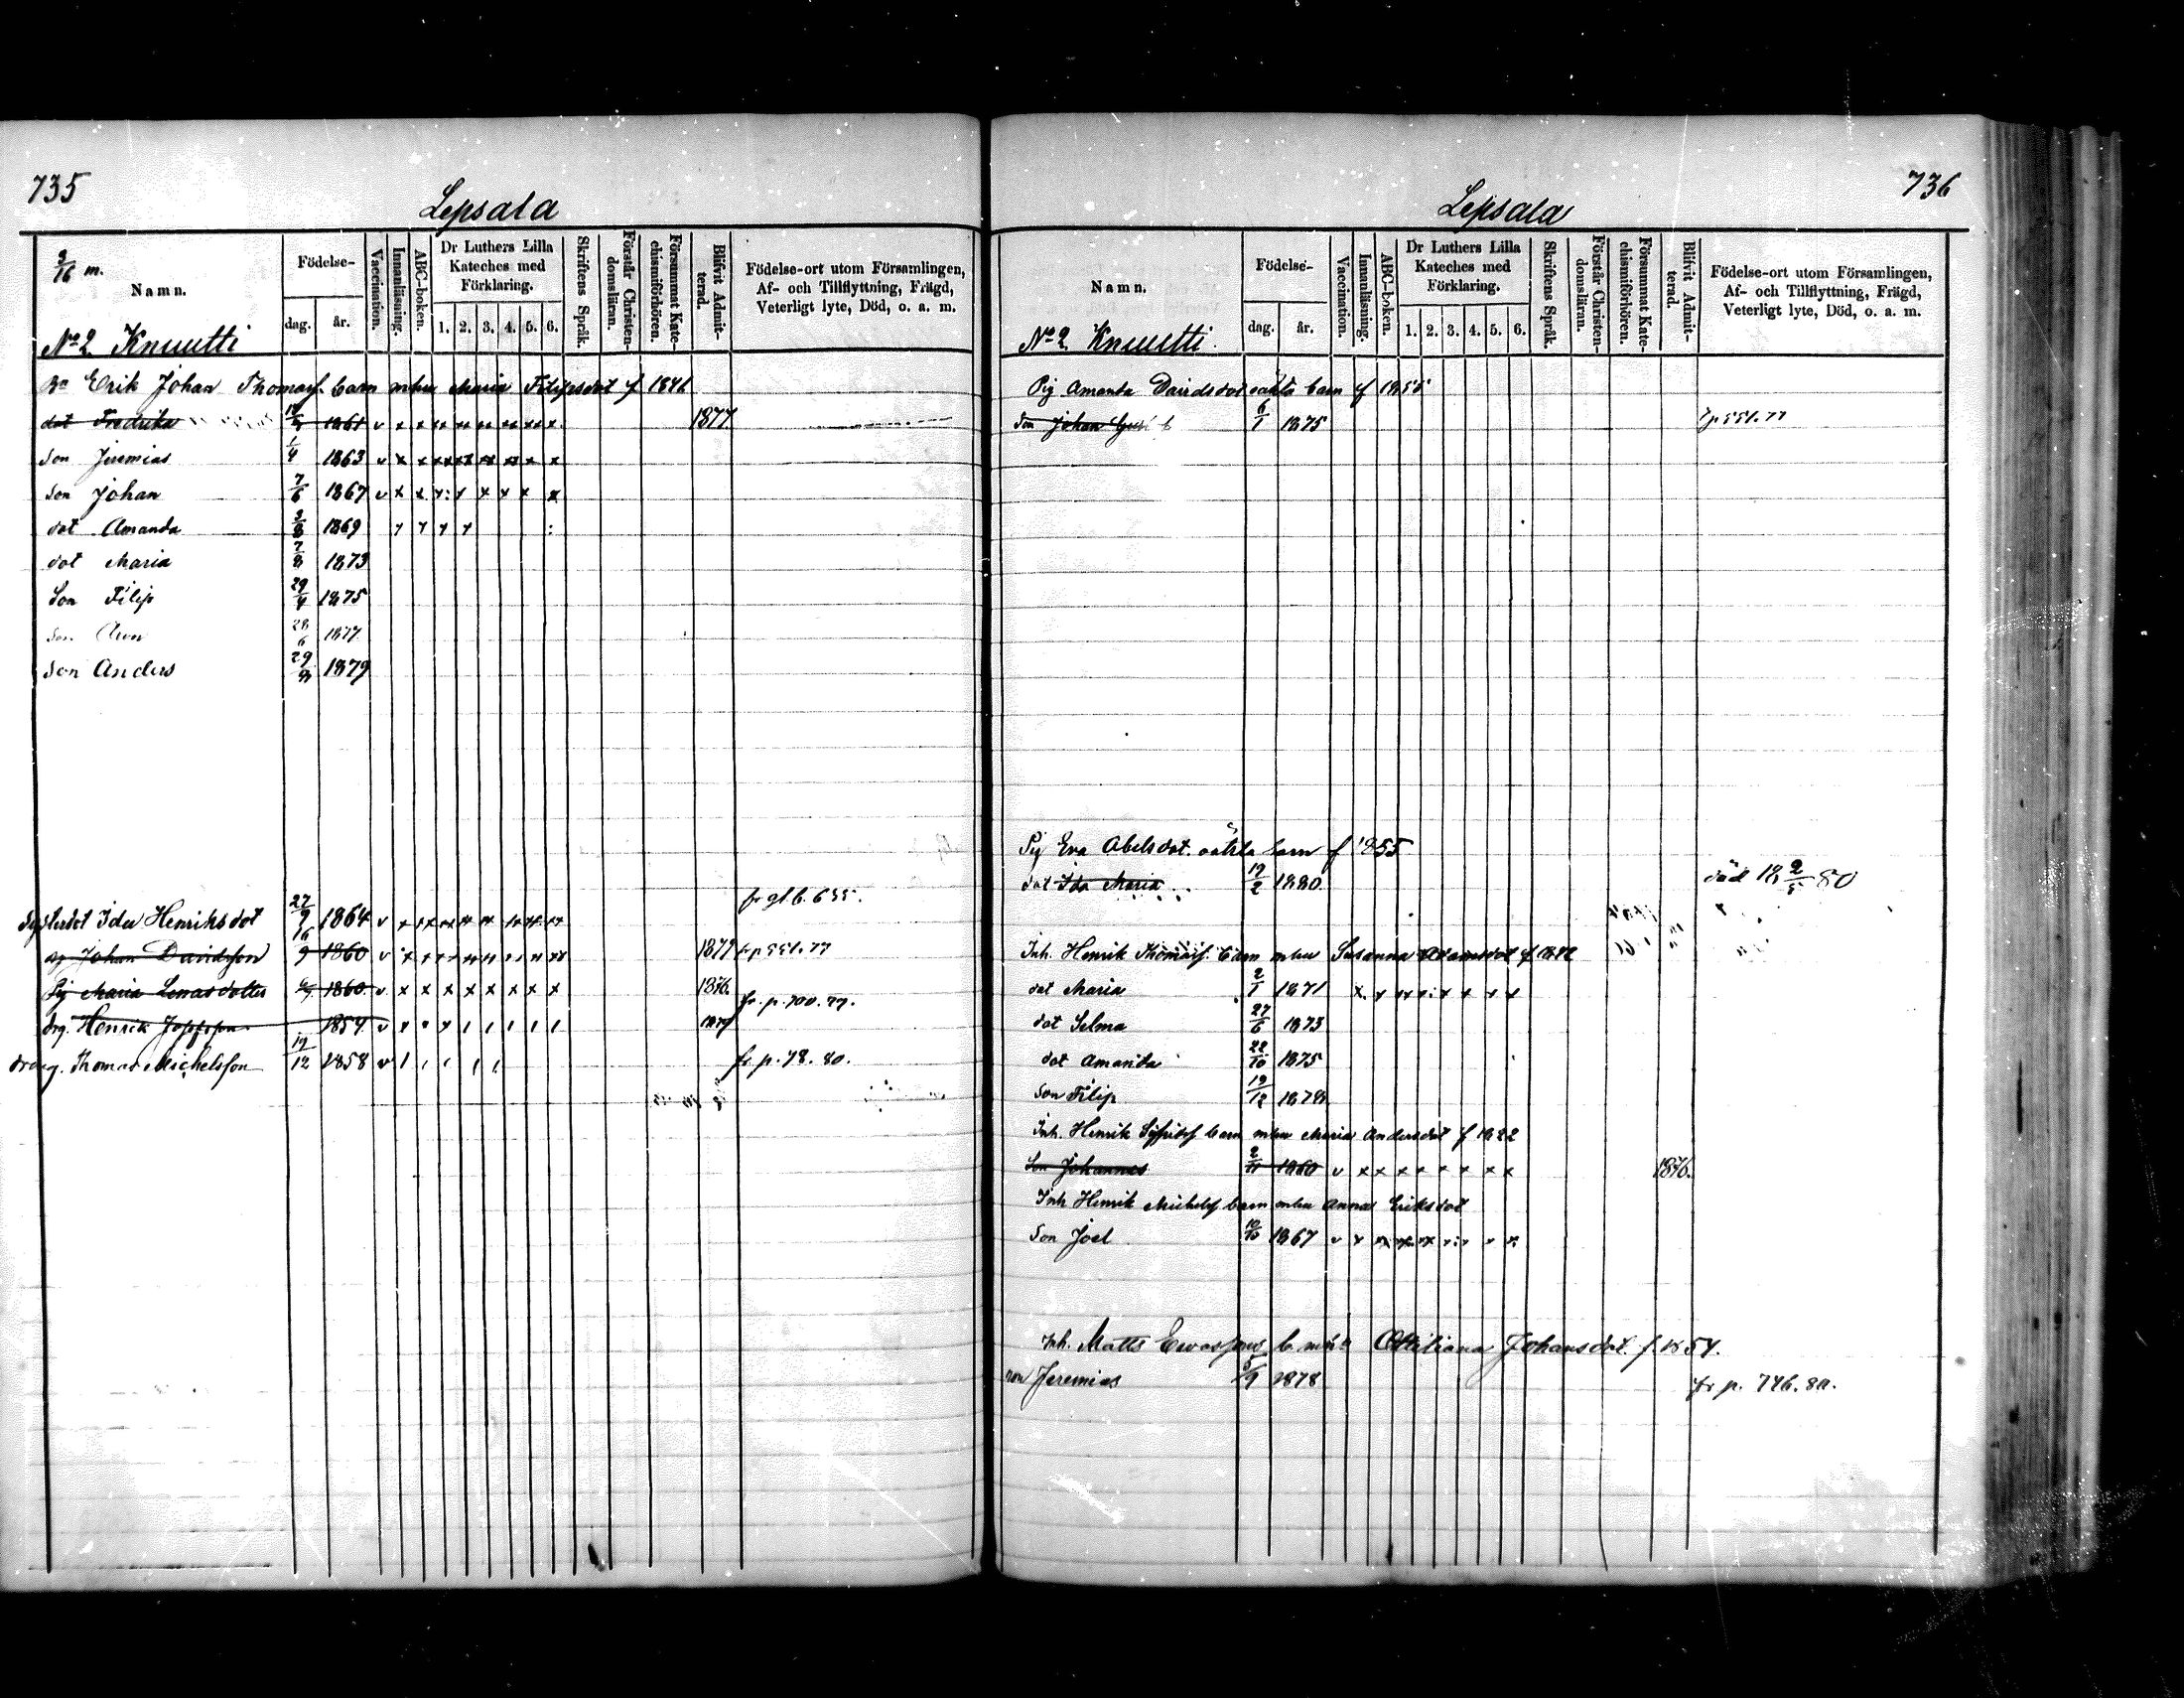 735
Lepsala
3/16 m.
Namn.
Födelse-
dag.
år.
Vaccination.
Innanläsning.
ABC-boken.
Dr Luthers Lilla Kateches med Förklaring.
1. 2. 3. 4. 5. 6.
Skriftens Språk.
Förstår Christen-domsläran.
Försummat Kate-chismiförhören.
Blifvit Admit-terad.
Födelse-ort utom Församlingen, Af- och Tillflyttning, Frägd, Veterligt lyte, Död, o. a. m.
No 2 Knuutti
Bn Erik Johan Thomasf. barn mhu Maria Filipsdot f 1846
dot Fredrika 1861 v x x 1877
Son Jeremias 1/4 1863 v x x
Son Johan 7/6 1867 v x x
dot Amanda 3/8 1869
dot Maria 7/8 1873
Son Filip 29/4 1875
Son 28/6 1877
Son Anders 29/8 1879
Systerdot Ida Henriksdot 27/9 1864 v fr gl. b. 635.
Johan Davidsson 16/9 1860 v 1877 t. p 551. 77
Pig Maria Lenasdotter 1860 v x x x x x x x x 1876. fr. p. 700. 77.
drg. Henrik Josefsson 1854 v
dräng. Thomas Michelsson 19/12 1858 v fr. p. 78. 80.
736
Lepsala
Namn.
Födelse-
dag.
år.
Vaccination.
Innanläsning.
ABC-boken.
Dr Luthers Lilla Kateches med Förklaring.
1. 2. 3. 4. 5. 6.
Skriftens Språk.
Förstår Christen-domsläran.
Försummat Kate-chismiförhören.
Blifvit Admit-terad.
Födelse-ort utom Församlingen, Af- och Tillflyttning, Frägd, Veterligt lyte, Död, o. a. m.
No 2 Knuutti.
Pig Amanda Davidsdot oäkta barn f 1855
Son Johan 6/1 1875 t p 551. 77
Pig Eva Abelsdot. oäkta barn f 1855
dot Ida Maria 19/2 1880 död 18 2/5 80
Inh. Henrik Thomasf. barn mhu Susanna Adamsdot f 1842
dot Maria 2/1 1871
dot Selma 27/6 1873
dot Amanda 22/10 1875
Son Filip 19/12 1878
Inh. Henrik Sigfridsf barn mhu Maria Andersdot f 1822
Son Johannes 2/11 1860 v x x x x x x x x 1876.
Inh Henrik Michelsf barn mhu Anna Eriksdot
Son Joel 10/10 1867
Inh. Matts Ewasson b mhu Ottiliana Johansdot. f. 1854.
son Jeremias 5/9 1878 fr p. 746. 80.